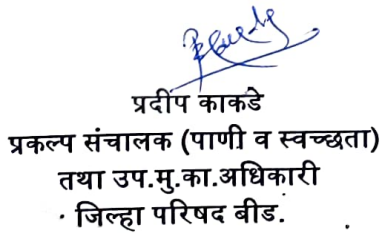 प्रदीप काकडे
प्रकल्प संचालक (पाणी व स्वच्छता)
तथा उप.मु.का.अधिकारी
जिल्हा परिषद बीड.